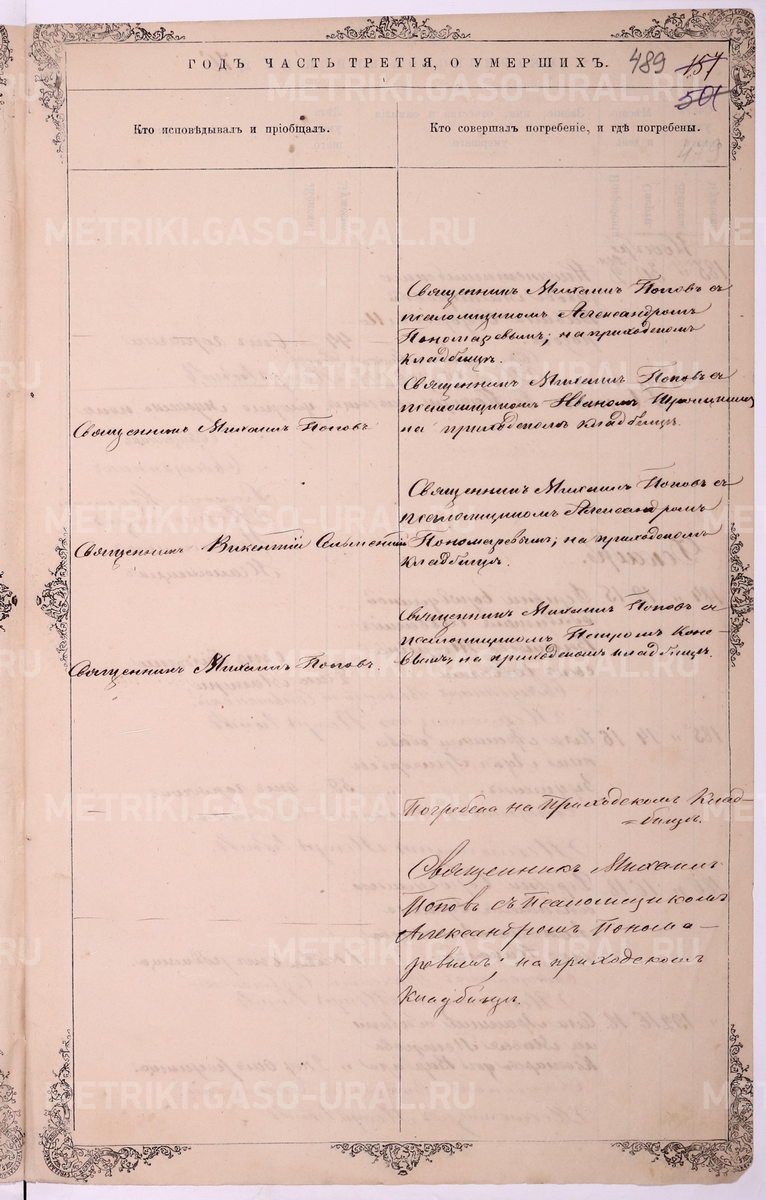 ГОДЪ ЧАСТЬ ТРЕТІЯ, О УМЕРШИХЪ.
489
157
501
Кто исповѣдывалъ и пріобщалъ.
Кто совершалъ погребеніе, и гдѣ погребены.
METRIKI.GASO-URAL.RU
Священникъ Михаилъ Поповъ съ
псаломщикомъ Александромъ
Пономаревымъ; на приходскомъ
кладбищѣ.
Священникъ Михаилъ Поповъ
Священникъ Михаилъ Поповъ съ
псаломщикомъ Иваномъ
на приходскомъ кладбищѣ.
Священникъ Викентій
Священникъ Михаилъ Поповъ съ
псаломщикомъ Александромъ
Пономаревымъ; на приходскомъ
кладбищѣ.
Священникъ Михаилъ Поповъ.
Священникъ Михаилъ Поповъ съ
псаломщикомъ Петромъ Коно-
вымъ, на приходскомъ кладбищѣ.
Погребена на Приходскомъ Клад-
=бищѣ.
Священникъ Михаилъ
Поповъ съ Псаломщикомъ
Александромъ Понома-
ревымъ; на приходскомъ
Кладбищѣ.